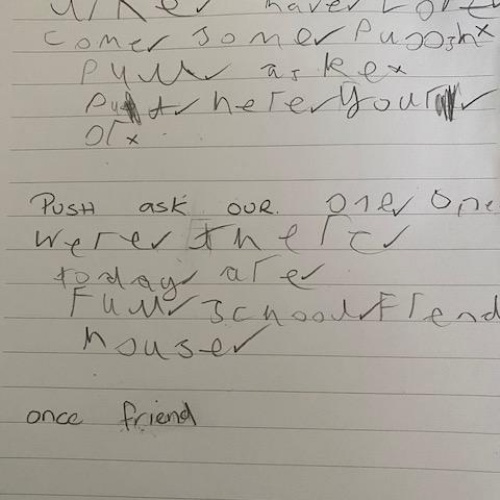 have
come some puoosh
pull ask
put here your
or
PUSH ask our one one
were there
today are
Full school Friend
house
once friend